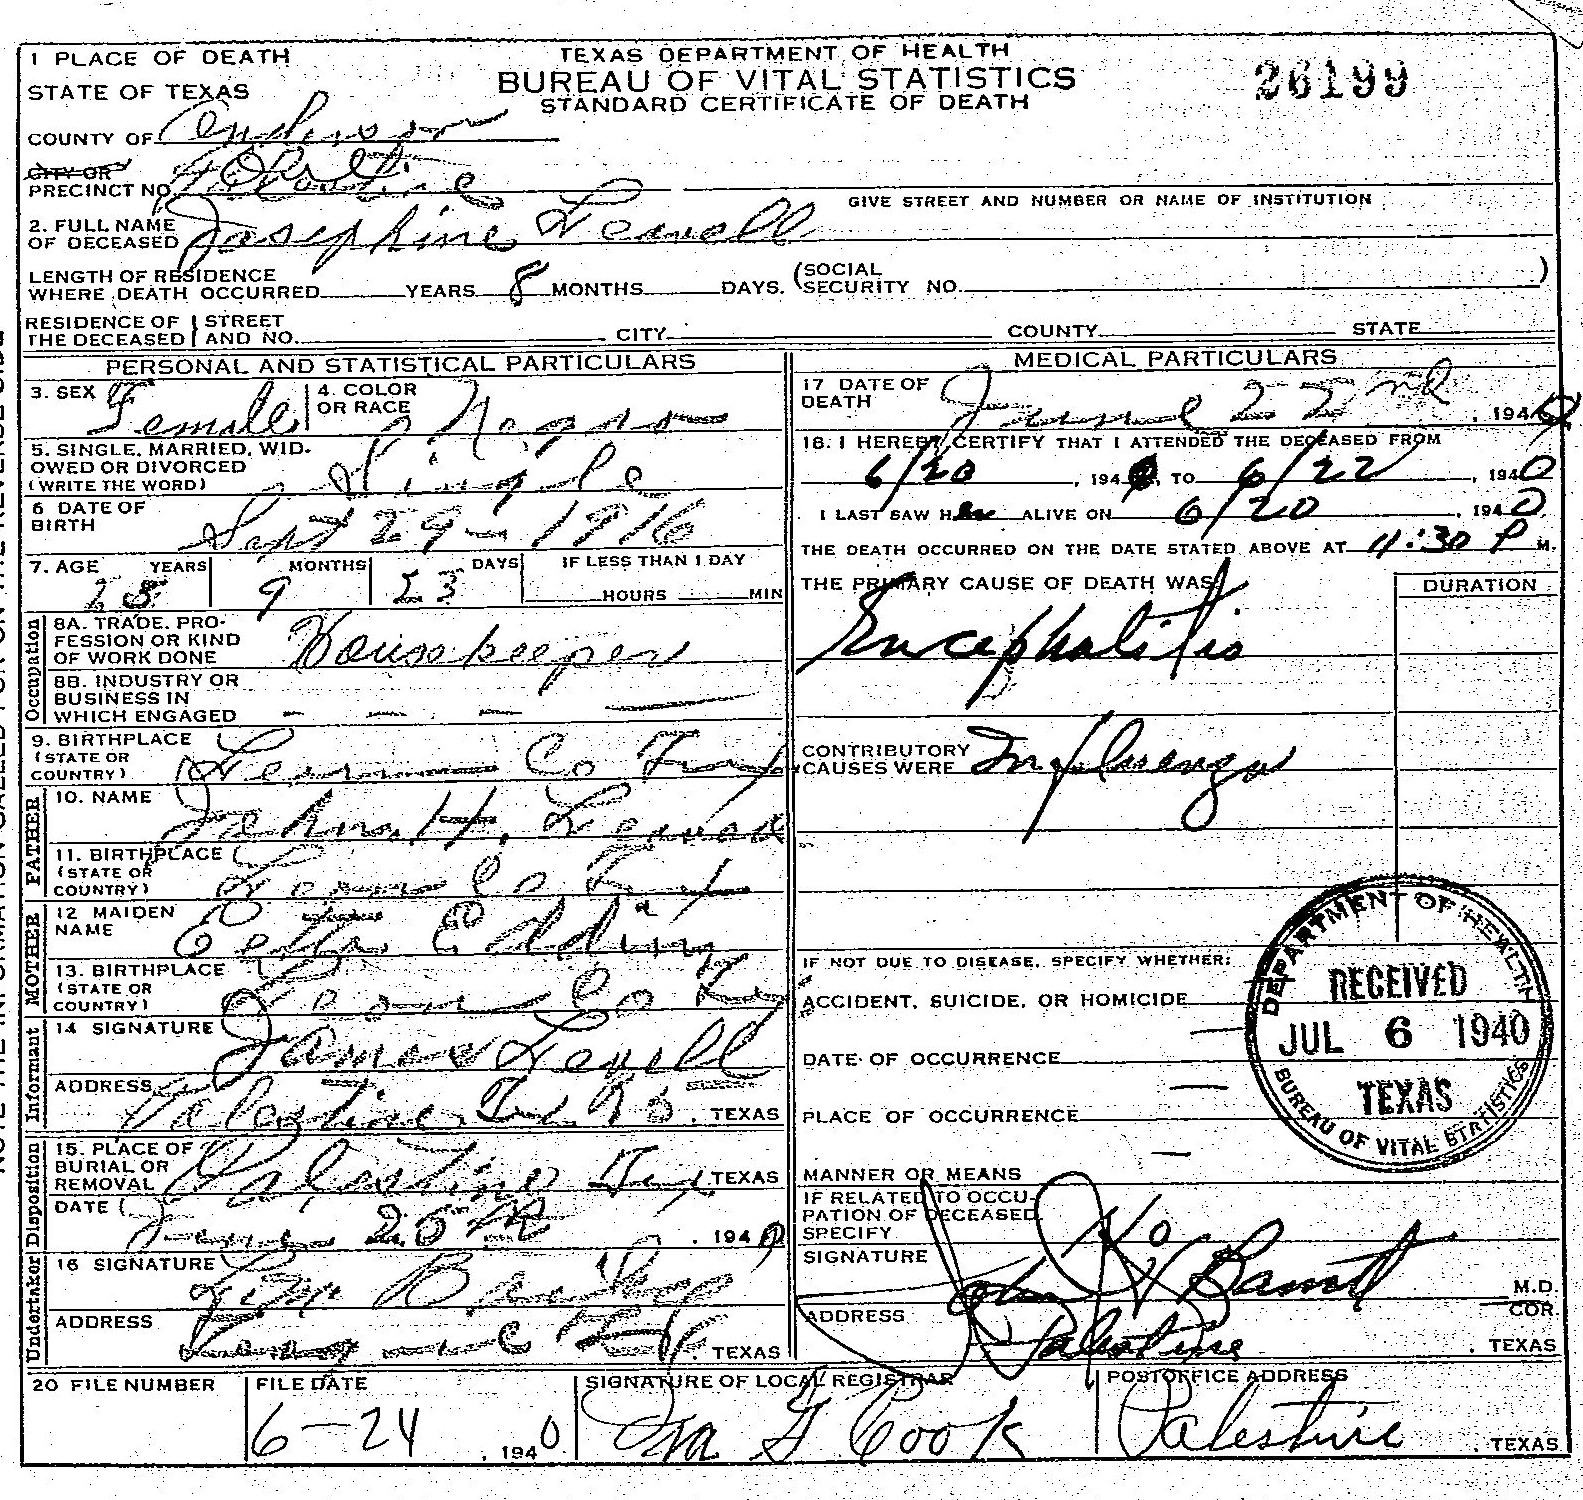 1 PLACE OF DEATH
STATE OF TEXAS
TEXAS DEPARTMENT OF HEALTH
BUREAU OF VITAL STATISTICS
STANDARD CERTIFICATE OF DEATH
26199
COUNTY OF Anderson
CITY OR
PRECINCT NO. Palestine
GIVE STREET AND NUMBER OR NAME OF INSTITUTION
2. FULL NAME
OF DECEASED Josephine Leavell
LENGTH OF RESIDENCE
WHERE DEATH OCCURRED YEARS 8 MONTHS DAYS. (SOCIAL
SECURITY NO. )
RESIDENCE OF STREET
THE DECEASED AND NO. CITY COUNTY STATE
PERSONAL AND STATISTICAL PARTICULARS
3. SEX Female 4. COLOR
OR RACE Negro
5. SINGLE, MARRIED, WID-
OWED OR DIVORCED
(WRITE THE WORD) Single
6 DATE OF
BIRTH Sept 29 - 1916
7. AGE YEARS MONTHS DAYS IF LESS THAN 1 DAY
9 23 HOURS MIN
Occupation
8A. TRADE, PRO-
FESSION OR KIND
OF WORK DONE Housekeeper
8B. INDUSTRY OR
BUSINESS IN
WHICH ENGAGED - - - —
9. BIRTHPLACE
(STATE OR
COUNTRY) Leon Co Tex
FATHER
10. NAME John H. Leavell
11. BIRTHPLACE
(STATE OR
COUNTRY) Leon Co Tex
MOTHER
12 MAIDEN
NAME Eddin
13. BIRTHPLACE
(STATE OR
COUNTRY) Leon Co Tex
Informant
14 SIGNATURE James Levell
ADDRESS Palestine Tex . TEXAS
Disposition
15. PLACE OF
BURIAL OR
REMOVAL Palestine Tex . TEXAS
DATE June 25th . 1940
Undertaker
16 SIGNATURE
ADDRESS . TEXAS
MEDICAL PARTICULARS
17 DATE OF
DEATH June 22nd , 1940
18. I HEREBY CERTIFY THAT I ATTENDED THE DECEASED FROM
6/20 , 1940, TO 6/22 , 1940
I LAST SAW Her ALIVE ON 6/20 , 1940
THE DEATH OCCURRED ON THE DATE STATED ABOVE AT 11:30 P M.
THE PRIMARY CAUSE OF DEATH WAS: DURATION
Encephalitis
CONTRIBUTORY
CAUSES WERE Influenza
IF NOT DUE TO DISEASE, SPECIFY WHETHER:
ACCIDENT, SUICIDE, OR HOMICIDE
DATE OF OCCURRENCE
PLACE OF OCCURRENCE
MANNER OR MEANS
IF RELATED TO OCCU-
PATION OF DECEASED
SPECIFY No
SIGNATURE John M.D.
COR.
ADDRESS Palestine . TEXAS
DEPARTMENT OF HEALTH
RECEIVED
JUL 6 1940
TEXAS
BUREAU OF VITAL STATISTICS
20 FILE NUMBER FILE DATE SIGNATURE OF LOCAL REGISTRAR POSTOFFICE ADDRESS
6-24 , 1940 Ira G Cook Palestine . TEXAS